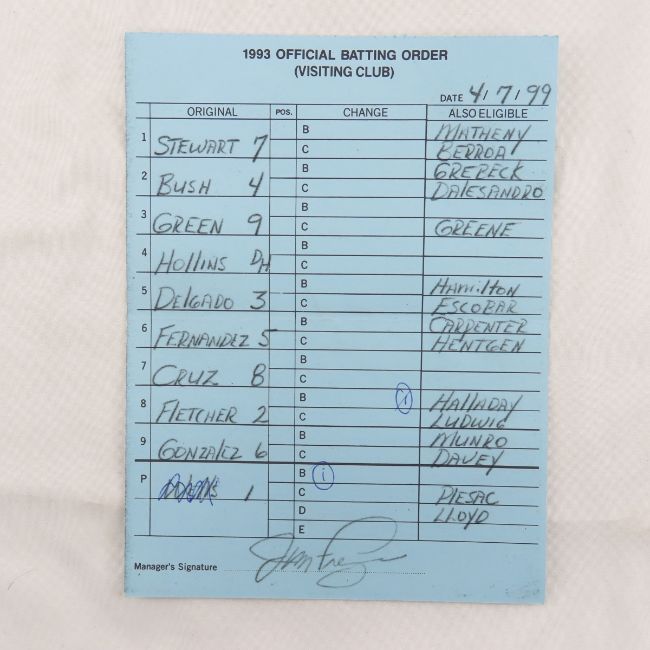 1993 OFFICIAL BATTING ORDER
(VISITING CLUB)
DATE 4/7/99
ORIGINAL POS. CHANGE ALSO ELIGIBLE
1 STEWART 7 B MATHENY
C BERROA
2 BUSH 4 B GREBECK
C DALESANDRO
3 GREEN 9 B
C GREENE
4 HOLLINS DH B
C
5 DELGADO 3 B HAMILTON
C ESCOBAR
6 FERNANDEZ 5 B CARPENTER
C HENTGEN
7 CRUZ 8 B
C
8 FLETCHER 2 B 1 HALLADAY
C LUDWIG
9 GONZALEZ 6 B MUNRO
C DAVEY
P 1 B 1
C PLESAC
D LLOYD
E
Manager's Signature Jim Fregosi